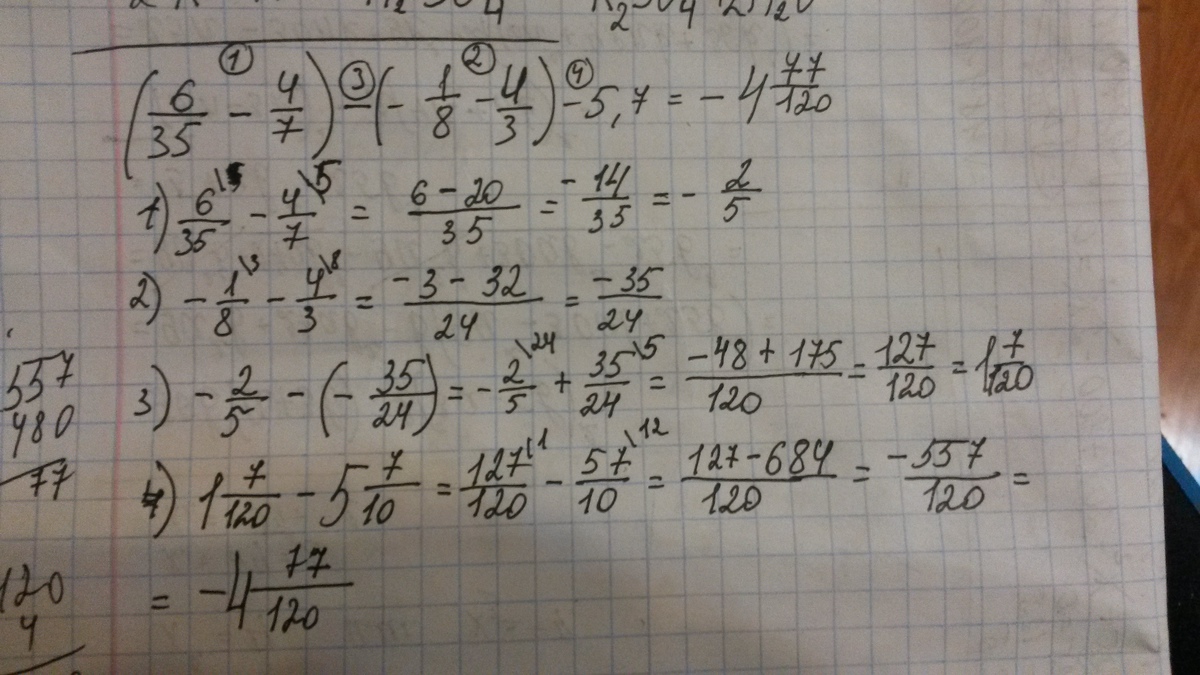 (6/35 - 4/7) - (- 1/8 - 4/3) - 5,7 = - 4 77/120
① ③ ② ④
1) 6/35 - 4/7 \5 = (6 - 20)/35 = - 14/35 = - 2/5
2) - 1/8 \3 - 4/3 \8 = (-3 - 32)/24 = -35/24
3) - 2/5 - (- 35/24) = - 2/5 \24 + 35/24 \5 = (-48 + 175)/120 = 127/120 = 1 7/120
4) 1 7/120 - 5 7/10 = 127/120 \1 - 57/10 \12 = (127 - 684)/120 = -557/120 =
= - 4 77/120
557
480
77
120
4